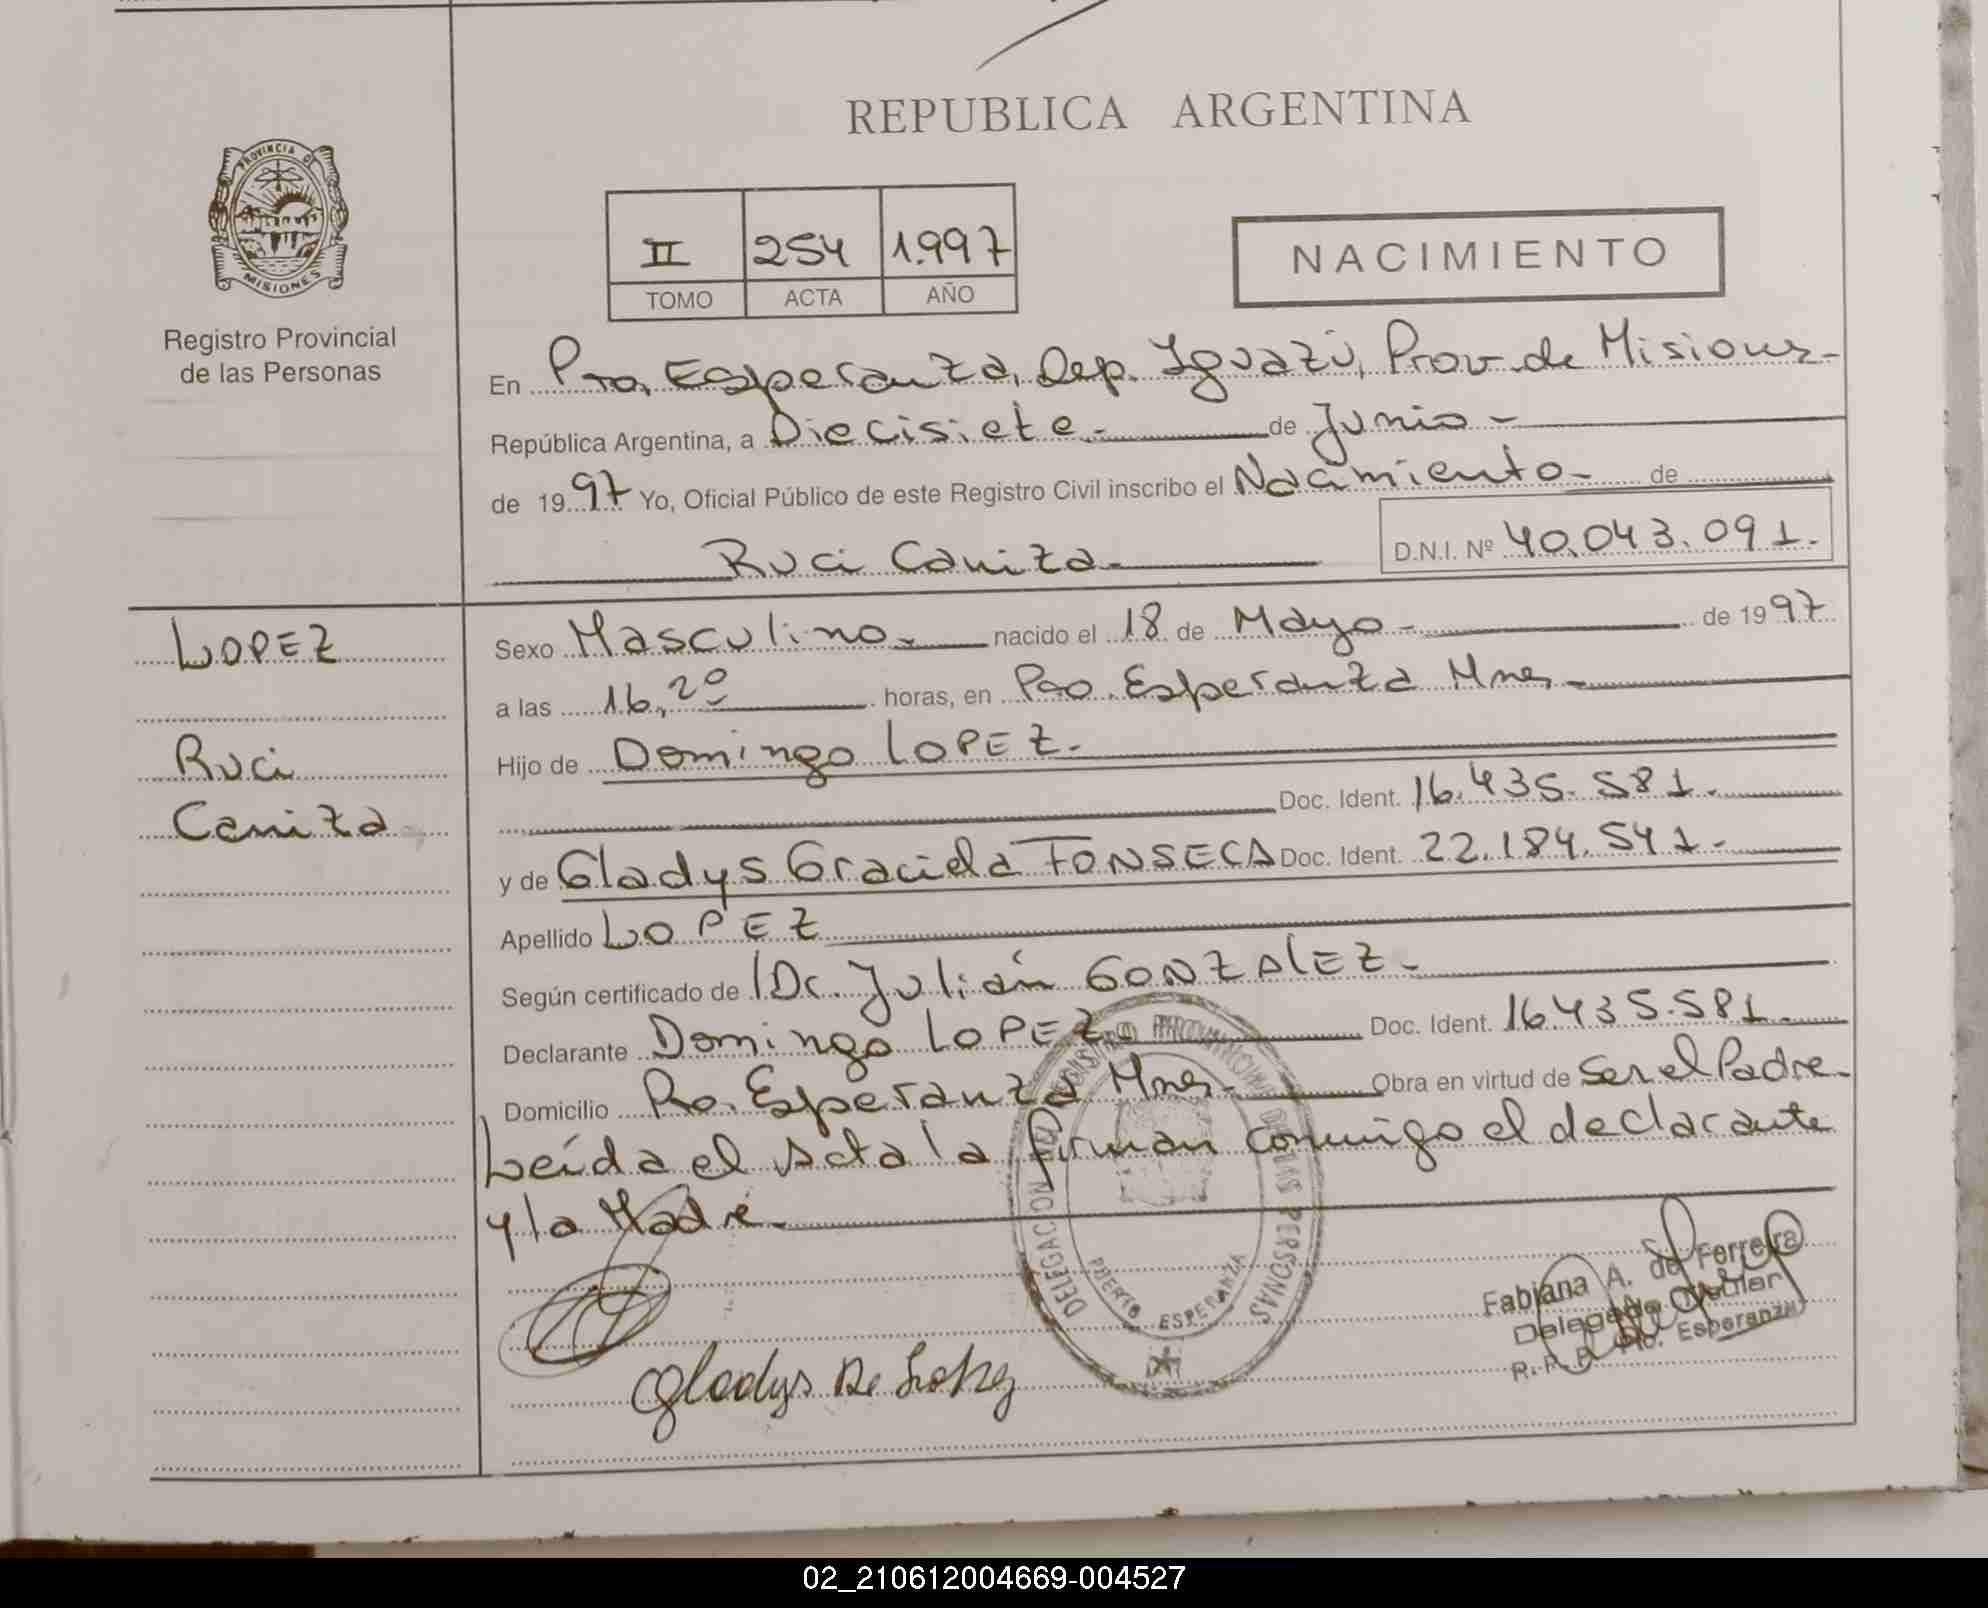 REPUBLICA ARGENTINA
PROVINCIA DE
MISIONES
Registro Provincial
de las Personas
II 254 1.997
TOMO ACTA AÑO
NACIMIENTO
En Pto. Esperanza, Dep. Iguazú, Prov. de Misiones-
República Argentina, a Diecisiete.- de Junio -
de 1997 Yo, Oficial Público de este Registro Civil inscribo el Nacimiento- de
Ruci Caniza- D.N.I. Nº 40.043.091.
LOPEZ
Ruci
Caniza
Sexo Masculino- nacido el 18 de Mayo - de 1997
a las 16,20 horas, en Pto. Esperanza Mnes-
Hijo de Domingo LOPEZ.
Doc. Ident. 16.435.581.
y de Gladys Graciela FONSECA Doc. Ident. 22.184.541.
Apellido LOPEZ
Según certificado de Dr. Julián GONZALEZ-
Declarante Domingo LOPEZ Doc. Ident. 16435.581.
Domicilio Pto. Esperanza Mnes- Obra en virtud de Ser el Padre-
Leída el acta la firman conmigo el declarante
y la Madre-
DELEGACION DEL REGISTRO PROVINCIAL DE LAS PERSONAS
PUERTO ESPERANZA
Gladys De Lopez
Fabiana A. de Ferreira
Delegada Titular
R.P.P. Pto. Esperanza
02_210612004669-004527